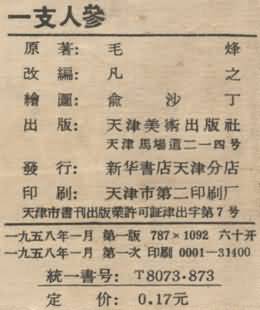 一支人參
原著：毛烽
改編：凡之
繪圖：俞沙丁
出版：天津美術出版社
天津馬場道二一四号
發行：新华書店天津分店
印刷：天津市第二印刷厂
天津市書刊出版業許可証津出字第7号
一九五八年一月 第一版 787×1092 六十开
一九五八年一月 第一次 印刷 0001—31400
統一書号：T8073·873
定价：0.17元